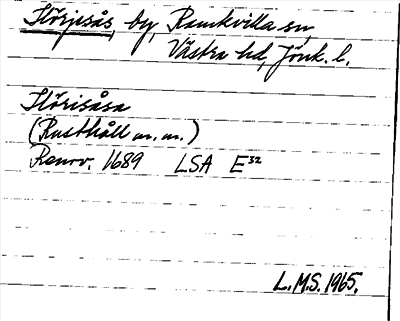 Flörjesås, by, Ramkvilla sn,
Västra hd, Jönk. l.
Flörisåsa
(Rusthåll m. m.)
Renov. 1689 LSA E³²
L.M.S. 1965.